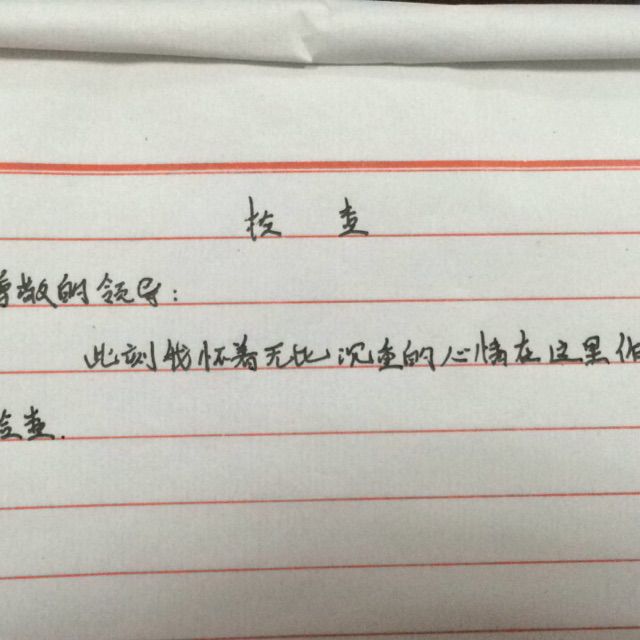 检 查
尊敬的领导:
此刻我怀着无比沉重的心情在这里
检查.